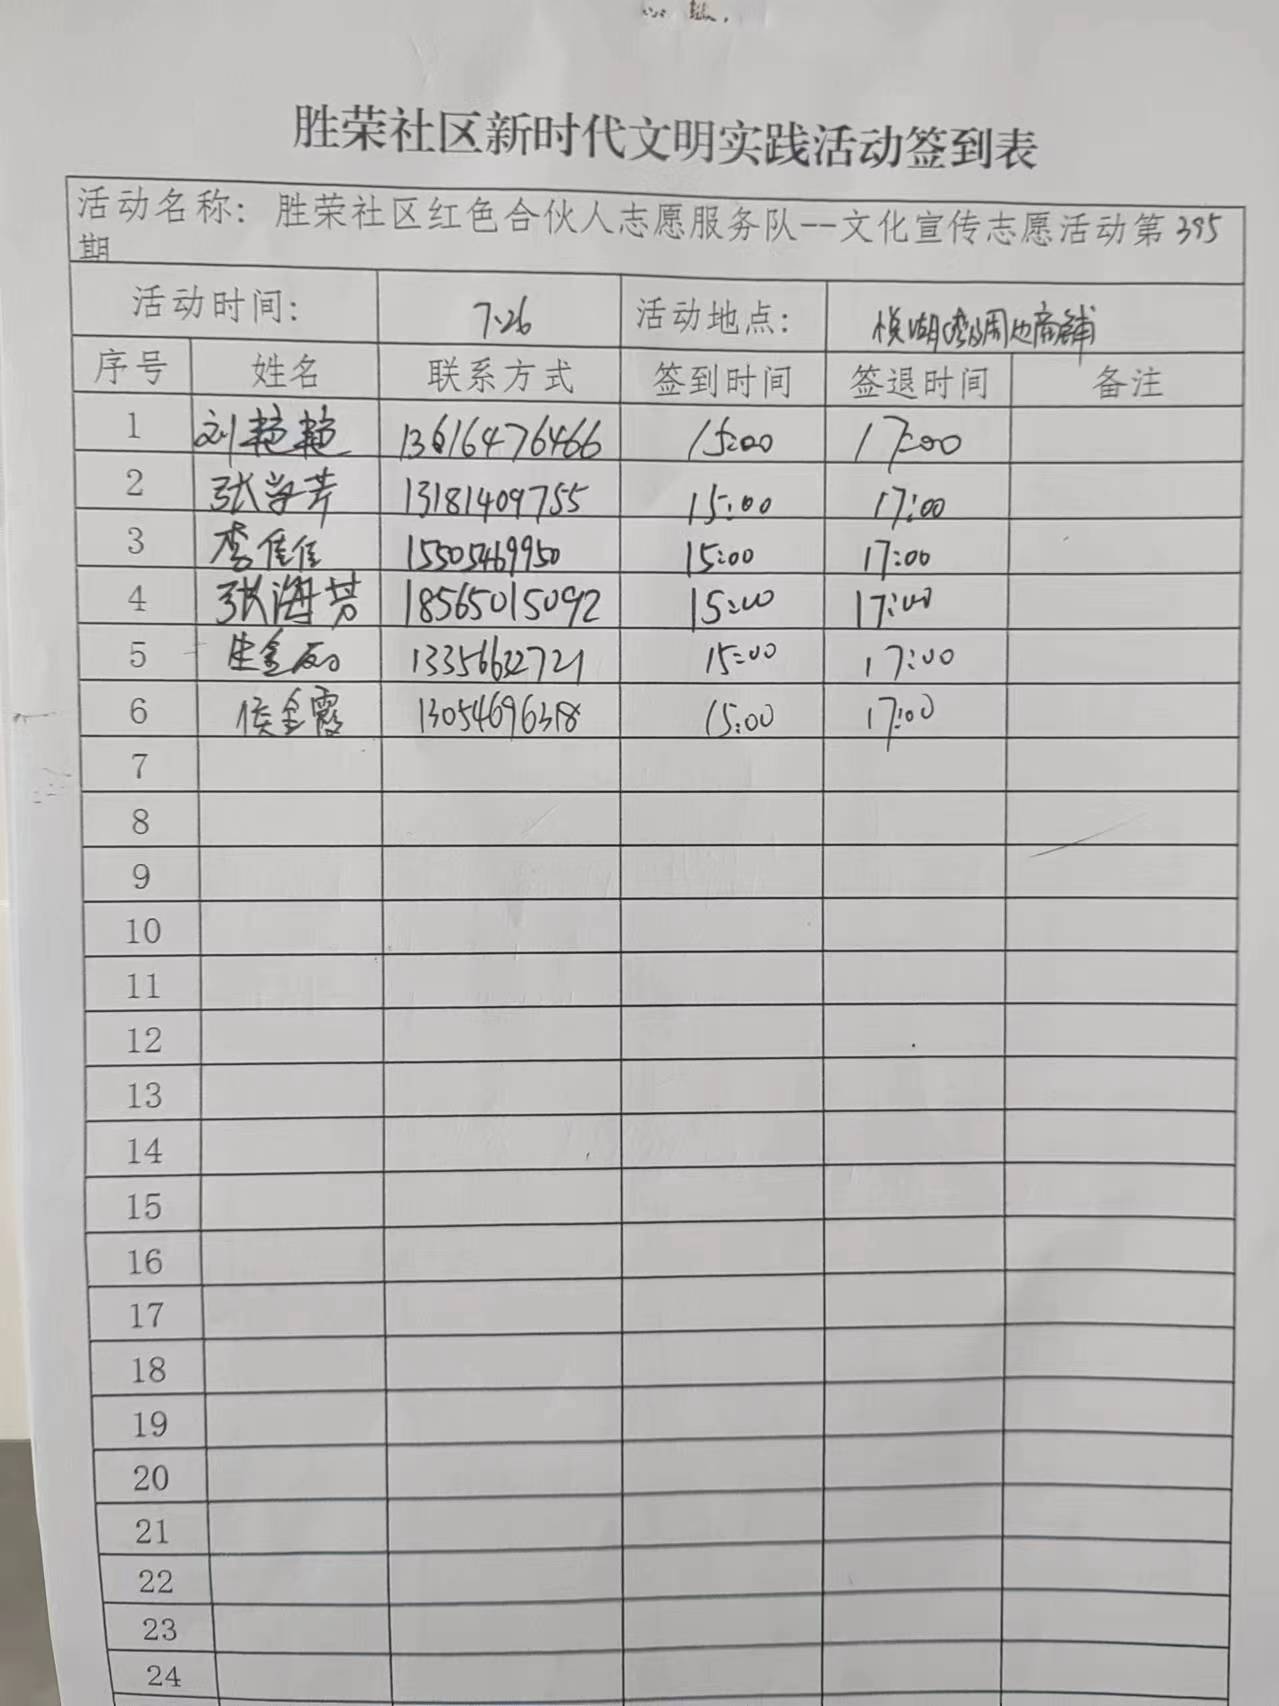 胜荣社区新时代文明实践活动签到表
活动名称：胜荣社区红色合伙人志愿服务队--文化宣传志愿活动第395
期
活动时间： 7.26 活动地点： 悦湖 周边商铺
序号 姓名 联系方式 签到时间 签退时间 备注
1 刘艳艳 13616476466 15:00 17:00
2 张学芹 13181409755 15:00 17:00
3 李佳佳 15505469950 15:00 17:00
4 张海芳 18565015092 15:00 17:00
5 13356632721 15:00 17:00
6 侯金霞 13054696318 15:00 17:00
7
8
9
10
11
12
13
14
15
16
17
18
19
20
21
22
23
24